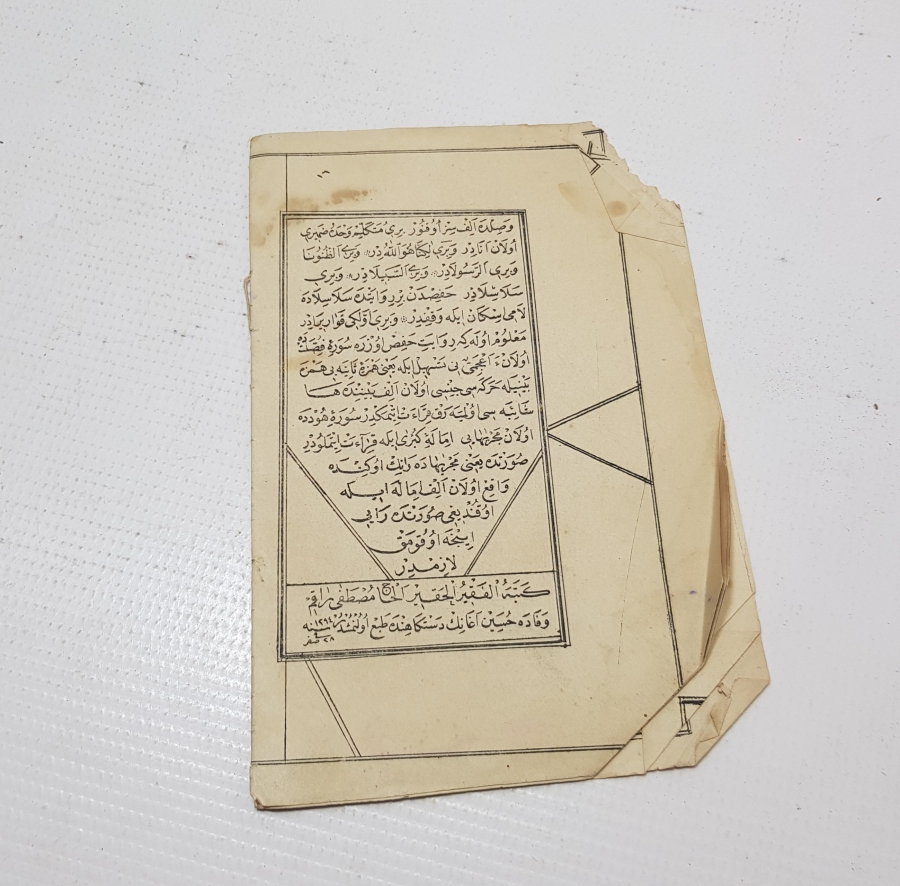 ١٦
وصلده الف سز اوقنور بری متكلم وحده ضمیری
اولان انادر وبری لكنا هو الله در وبری الظنونا
وبری الرسولادر وبری السبیلادر وبری
سلاسلادر حفصدن بر روایتده سلاسلاده
لامی اسكان ایله وقفدر وبری اولكی قواریرادر
معلوم اوله كه روایت حفص اوزره سورۀ فصلتده
اولان ءاعجمی یی تسهیل ایله یعنی همزۀ ثانیه یی همزه
بینیله حركه سی جنسی اولان الف بیننده ها
شائبه سی اولمیه رق قراءت ایتمكدر سورۀ هودده
اولان مجریها یی امالۀ كبری ایله قراءت ایتملودر
صورتده یعنی مجریها ده رانك اوكنده
واقع اولان الف اماله ایله
اوقندیغی صورتده رایی
اینجه اوقومق
لازمدر
كتبه الفقیر الحقیر الحاج مصطفی راقم
وفاده حسین اغانك دستكاهنده طبع اولنمشدر سنه ١٢٩٤
٢٨ صفر